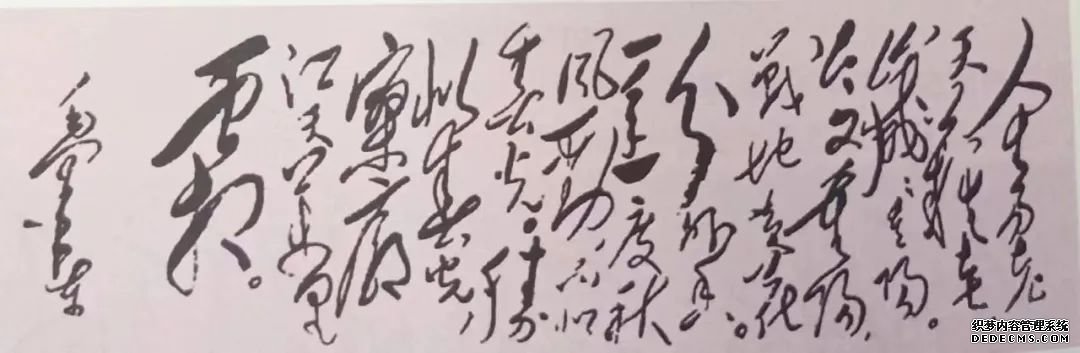 人生易老
天難老
歲歲重陽。
今又重陽，
戰地黄花
分外香。
一年一度秋
風勁，不似
春光。勝
似春光，
寥廓
江天萬里
霜。
毛澤東
织梦内容管理系统
DEDECMS.COM